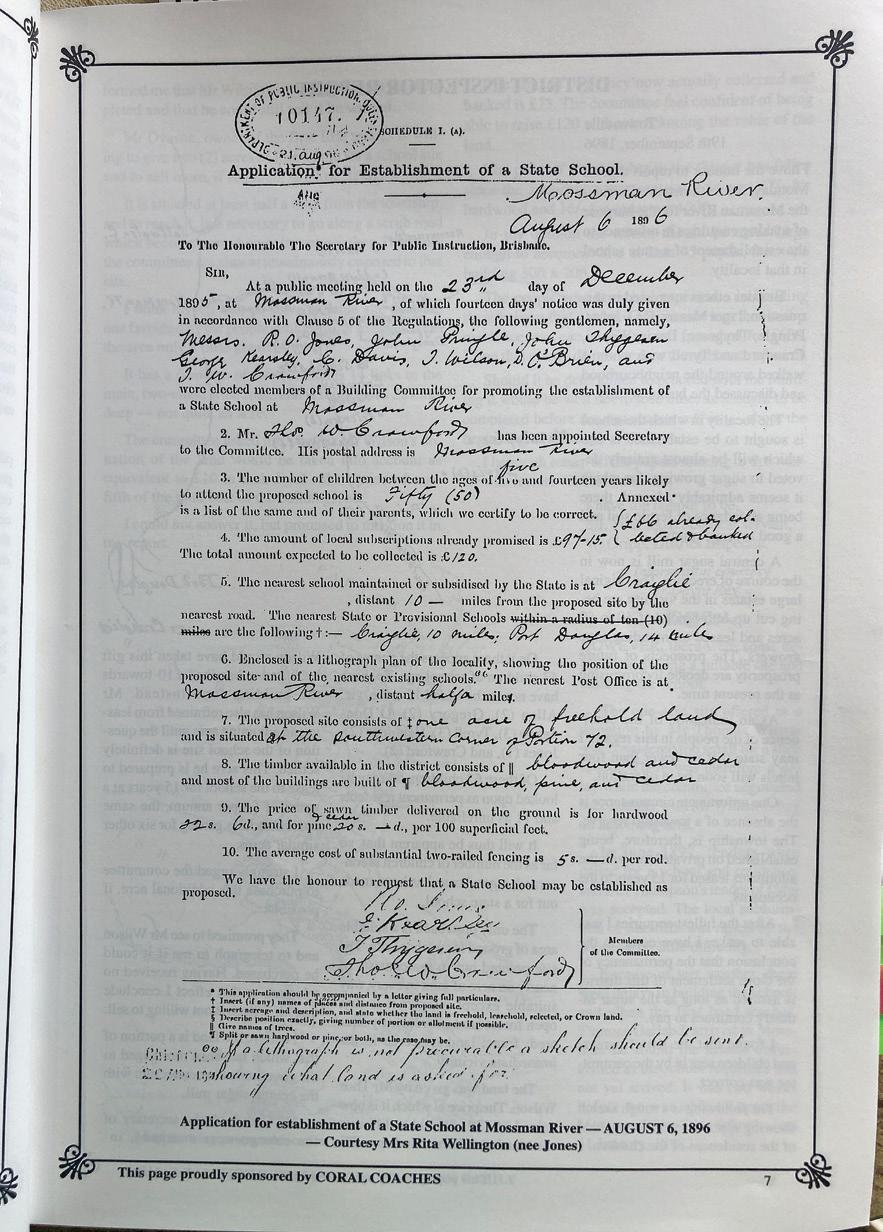 DEPARTMENT OF PUBLIC INSTRUCTION,
10147.
21. aug 96
SCHEDULE I. (A).
Application for Establishment of a State School.
Mossman River.
August 6 1896
To The Honourable The Secretary for Public Instruction, Brisbane.
SIR,
At a public meeting held on the 23rd day of December
1895, at Mossman River, of which fourteen days' notice was duly given
in accordance with Clause 5 of the Regulations, the following gentlemen, namely,
Messrs. R. O. Jones, John Pringle, John Thygesen
George Kearsley, C. Davis, J. Wilson, D. O'Brien, and
T. W. Crawford
were elected members of a Building Committee for promoting the establishment of
a State School at Mossman River
2. Mr. Thos. W. Crawford has been appointed Secretary
to the Committee. His postal address is Mossman River
five
3. The number of children between the ages of five and fourteen years likely
to attend the proposed school is Fifty (50) . Annexed
is a list of the same and of their parents, which we certify to be correct.
4. The amount of local subscriptions already promised is £97-15 { £66 already col-
lected & banked
The total amount expected to be collected is £120.
5. The nearest school maintained or subsidised by the State is at Craiglie
, distant 10 — miles from the proposed site by the
nearest road. The nearest State or Provisional Schools within a radius of ten (10)
miles are the following †:— Craiglie, 10 miles; Port Douglas, 14 miles
6. Enclosed is a lithograph plan of the locality, showing the position of the
proposed site and of the nearest existing schools. The nearest Post Office is at
Mossman River , distant half a mile.
7. The proposed site consists of ‡ one acre of freehold land
and is situated at the southwestern corner of Portion 72.
8. The timber available in the district consists of || bloodwood and cedar
and most of the buildings are built of ¶ bloodwood, pine, and cedar
9. The price of sawn timber delivered on the ground is for hardwood
& cedar
22s. 6d., and for pine 20s. —d., per 100 superficial feet.
10. The average cost of substantial two-railed fencing is 5s. —d. per rod.
We have the honour to request that a State School may be established as
proposed.
Thos. W. Crawford
Members
of the Committee.
* This application should be accompanied by a letter giving full particulars.
† Insert (if any) names of places and distance from proposed site.
‡ Insert acreage and description, and state whether the land is freehold, leasehold, selected, or Crown land.
§ Describe position exactly, giving number of portion or allotment if possible.
|| Give names of trees.
¶ Split or sawn hardwood or pine, or both, as the case may be.
If a lithograph is not procurable a sketch should be sent.
showing what land is asked for
Application for establishment of a State School at Mossman River — AUGUST 6, 1896
— Courtesy Mrs Rita Wellington (nee Jones)
This page proudly sponsored by CORAL COACHES
7